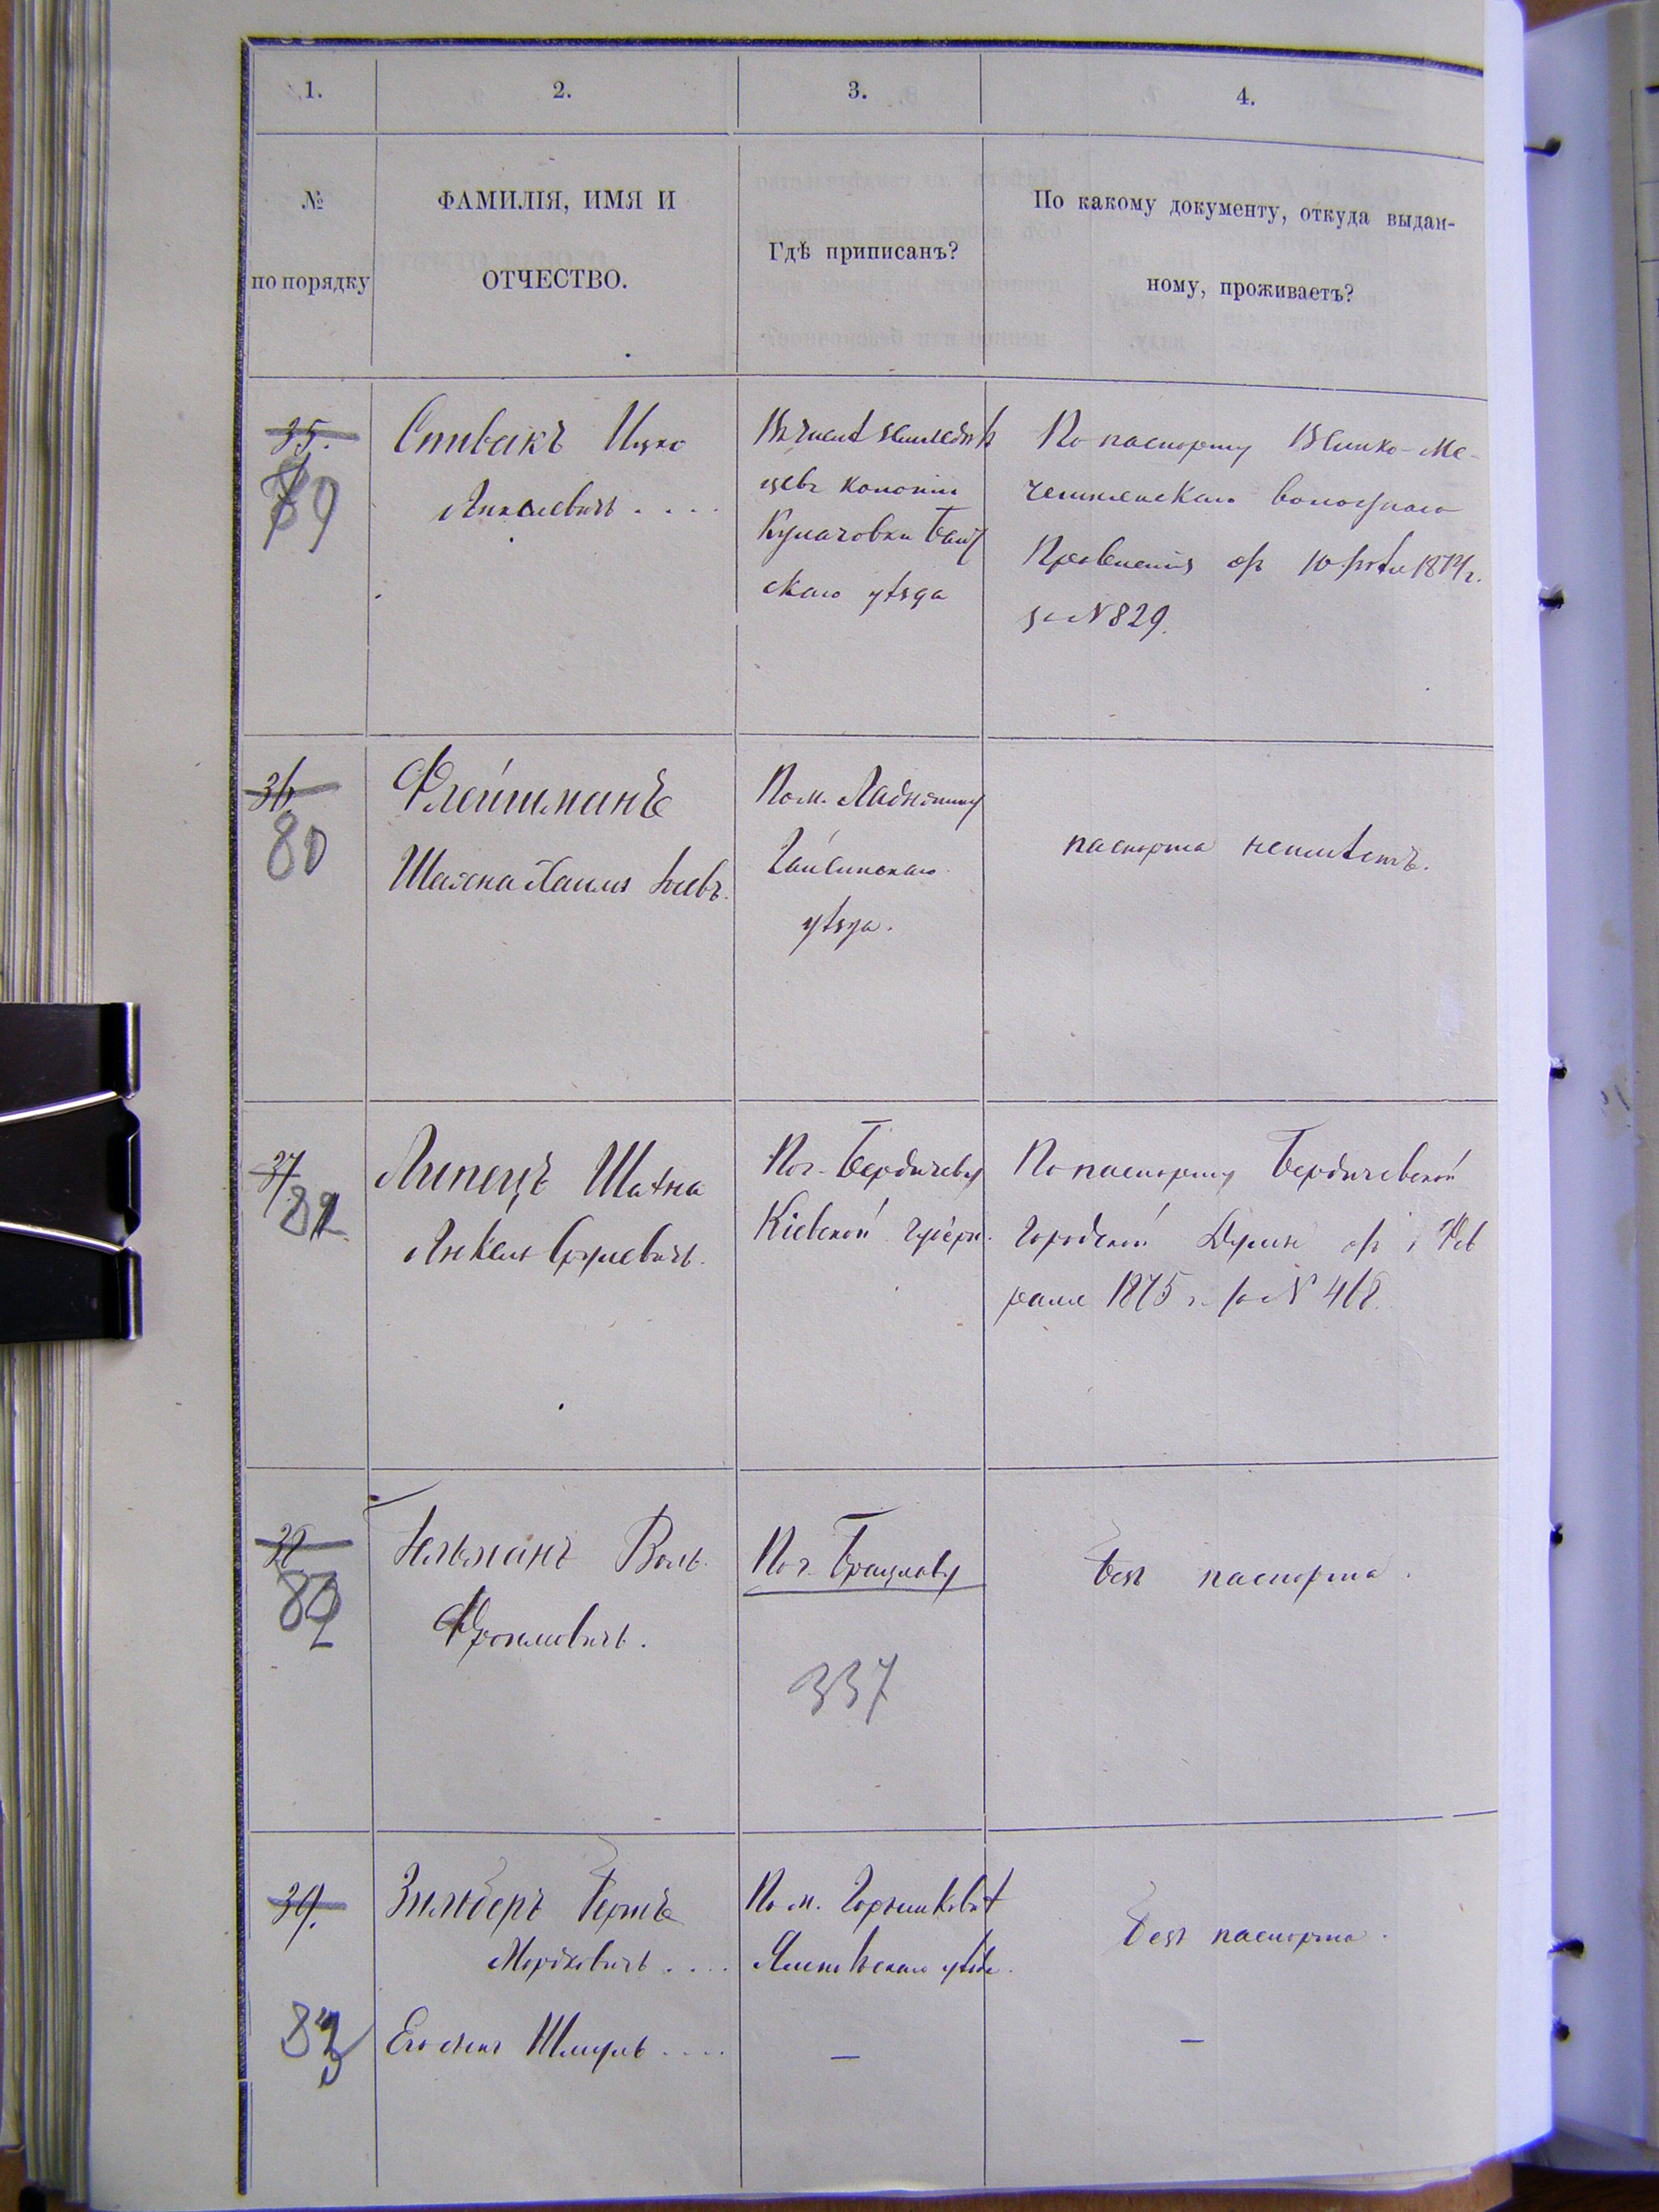 1.
2.
3.
4.
№
по порядку
ФАМИЛІЯ, ИМЯ И
ОТЧЕСТВО.
Гдѣ приписанъ?
По какому документу, откуда выдан-
ному, проживаетъ?
35.
79
Спивакъ Ицко
Янкелевичъ . . . .
Въ числѣ земледѣль
цевъ колоніи
Балт
скаго уѣзда
По паспорту Велико-Ме-
четнянскаго волостнаго
Правленія отъ 10 1874 г.
за № 829.
36.
80
Флейшманъ
Хаимъ
По м. Ладыжину
Гайсинскаго
уѣзда.
паспорта неимѣетъ.
37
81
Липецъ
Янкель Сруліевичъ.
По г. Бердичеву
Кіевской губерн.
По паспорту Бердичевской
городской Думы отъ Фев
раля 1875 г. за № 418.
38
82
Воль
Фроимовичъ.
По г. Брацлаву
337
безъ паспорта.
39.
83
Зильберъ Бершъ
Мордковичъ . . . .
Его сынъ Шмуль . . . .
По м.
уѣзда.
—
безъ паспорта.
—